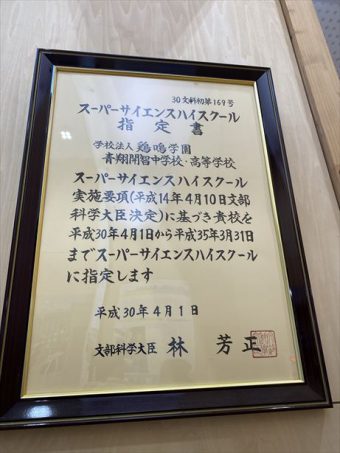 30文科初第169号
スーパーサイエンスハイスクール
指定書
学校法人 鶏鳴学園
青翔開智中学校・高等学校
スーパーサイエンスハイスクール
実施要項(平成14年4月10日文部
科学大臣決定)に基づき貴校を
平成30年4月1日から平成35年3月31日
までスーパーサイエンスハイスクール
に指定します
平成30年4月1日
文部科学大臣 林 芳正